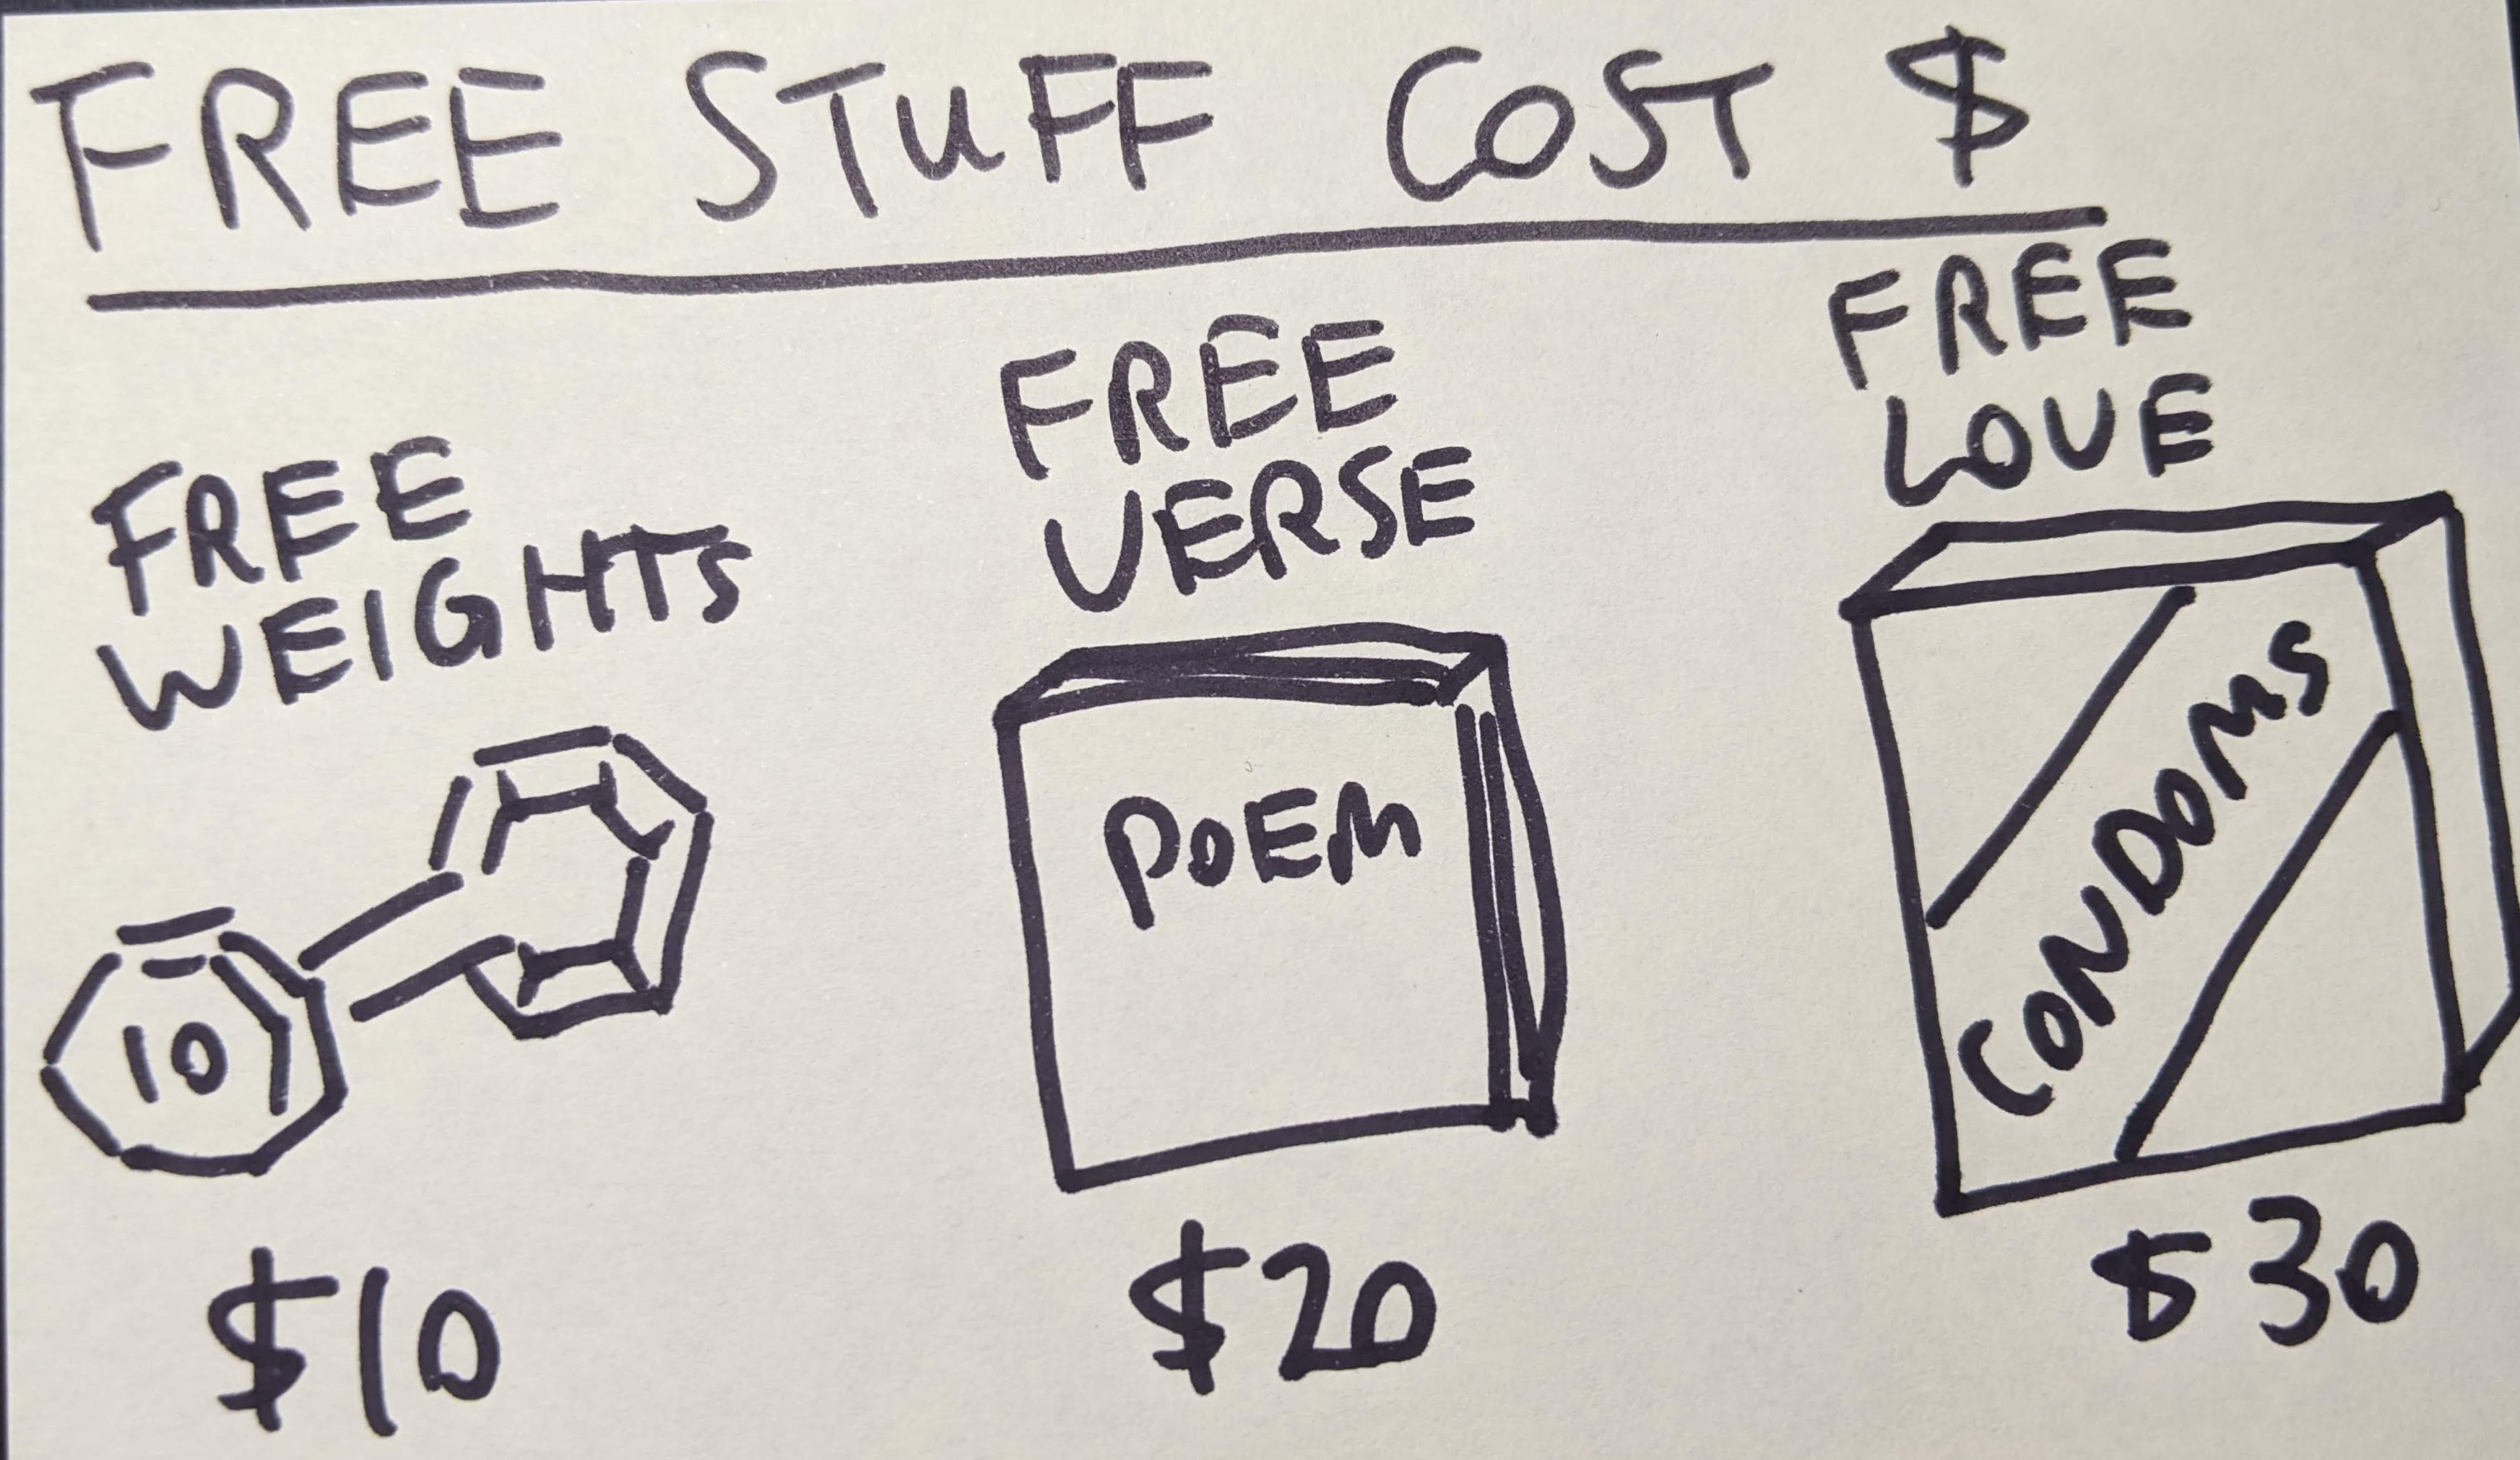 FREE STUFF COST $
FREE
WEIGHTS
10
$10
FREE
VERSE
POEM
$20
FREE
LOVE
CONDOMS
$30